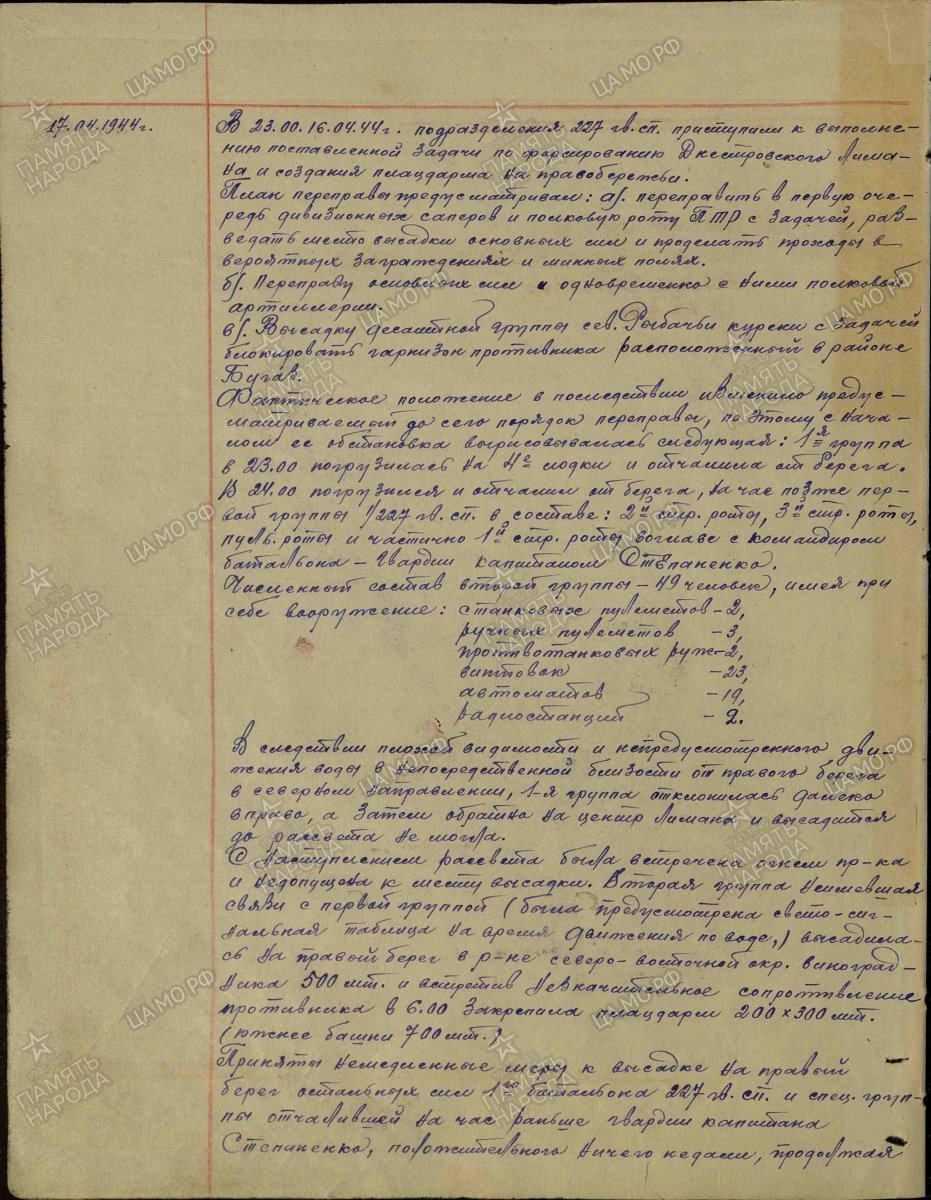 17.04.1944г.
В 23.00. 16.04.44г. подразделения 227 гв. сп. приступили к выполне-
нию поставленной задачи по форсированию Днестровского Лима-
на и создания плацдарма на правобережьи.
План переправы предусматривал: а/. переправить в первую оче-
редь дивизионных саперов и полковую роту ПТР с задачей, раз-
ведать место высадки основных сил и проделать проходы в
вероятных заграждениях и минных полях.
б/. Переправу основных сил и одновременно с ними полковой
артиллерии.
в/. Высадку десантной группы сев. Рыбачьи курени с задачей
блокировать гарнизон противника расположенный в районе
Бугаз.
Фактическое положение в последствии изменило предус-
матриваемый до сего порядок переправы, по этому с нача-
лом ее обстановка вырисовывалась следующая: 1я группа
в 23.00 погрузилась на 4е лодки и отчалила от берега.
В 24.00 погрузился и отчалил от берега, на час позже пер-
вой группы 1/227 гв. сп. в составе: 2й стр. роты, 3й стр. роты,
пуль. роты и частично 1й стр. роты во главе с командиром
батальона – Гвардии капитаном Степаненко.
Численный состав второй группы – 49 человек, имея при
себе вооружение: станковых пулеметов – 2,
ручных пулеметов – 3,
противотанковых руж – 2,
винтовок – 23,
автоматов – 19,
радиостанций – 2.
В следствии плохой видимости и непредусмотренного дви-
жения воды в непосредственной близости от правого берега
в северном направлении, 1-я группа отклонилась далеко
вправо, а затем обратно на центр Лимана и высадится
до рассвета не могла.
С наступлением рассвета была встречена огнем пр-ка
и недопущена к месту высадки. Вторая группа неимевшая
связи с первой группой (была предусмотрена свето-сиг-
нальная таблица на время движения по воде,) высадила-
сь на правый берег в р-не северо-восточной окр. виноград-
ника 500 мт. и встретив незначительное сопротивление
противника в 6.00 закрепила плацдарм 200 × 300 мт.
(южнее башни 700 мт.)
Приняты немедленные меры к высадке на правый
берег остальных сил 1го батальона 227 гв. сп. и спец. груп-
пы отчалившей на час раньше гвардии капитана
Степаненко, положительного ничего недали, продолжая
ПАМЯТЬ НАРОДА
ЦАМО.РФ